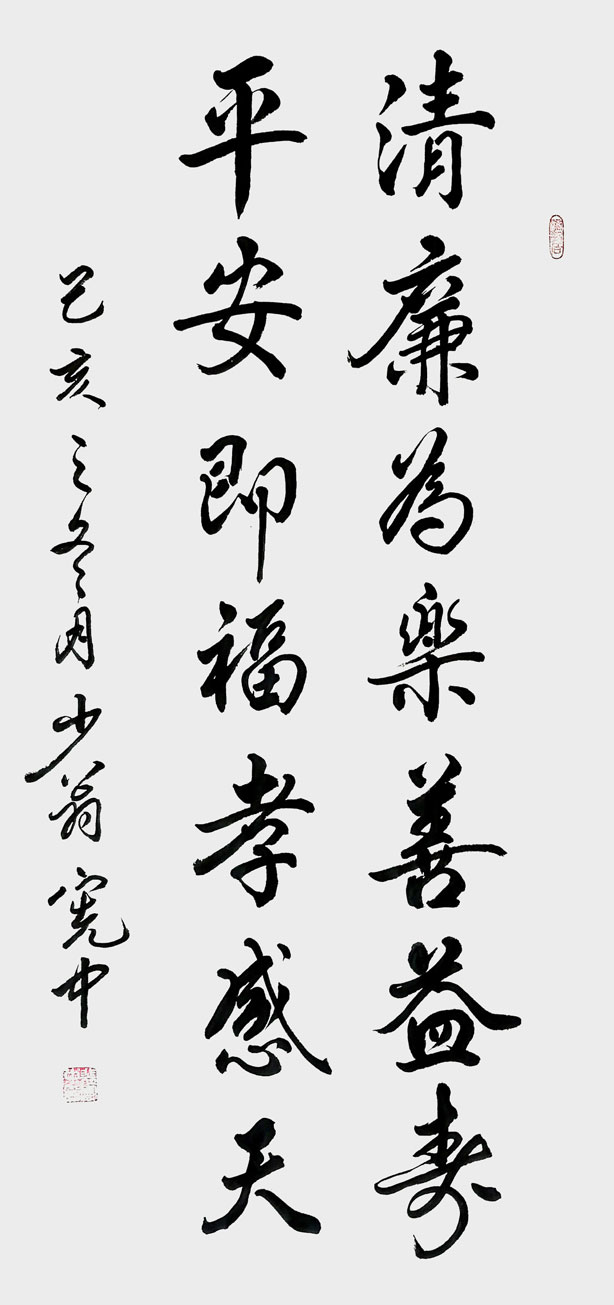 清廉為樂善益壽
平安即福孝感天
己亥之冬月少翁寬中